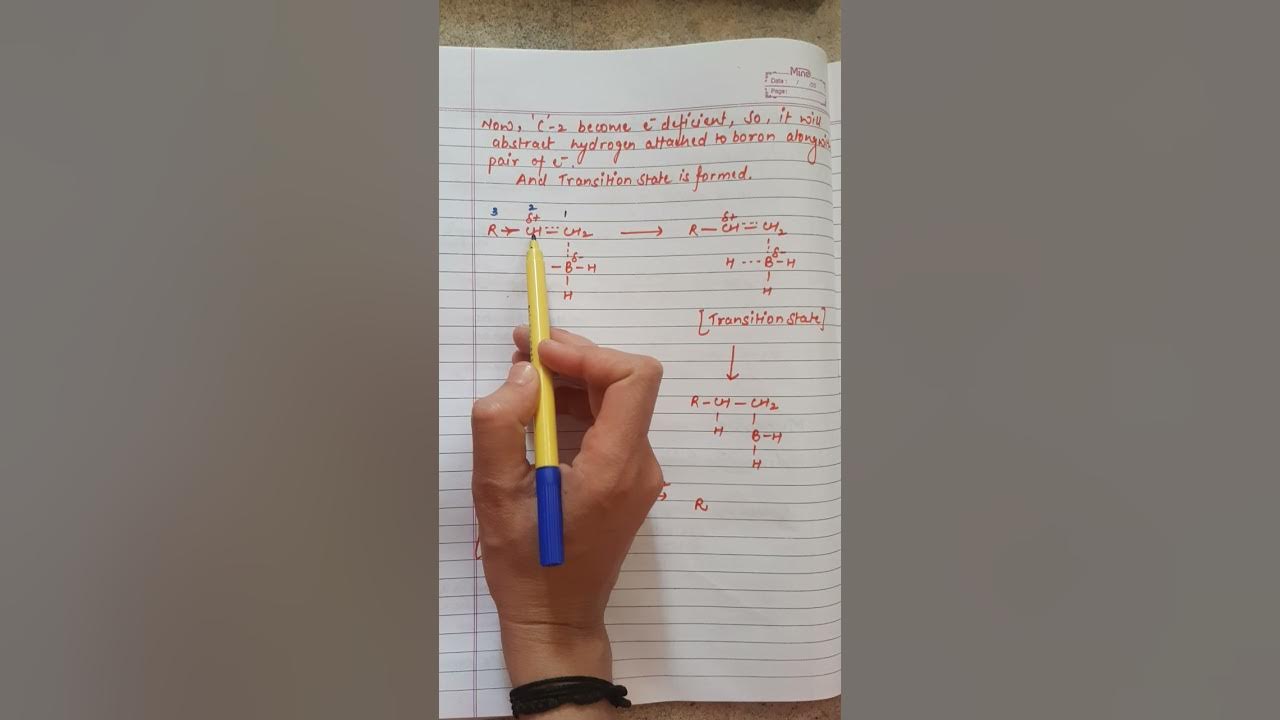 Mino
Date : /
Page:
Now, 'C'-2 become e⁻ deficient, So, it will
abstract hydrogen attached to boron alongwi
pair of e⁻.
And Transition State is formed.
3 2 1
δ+ δ+
R → CH ⩸ CH2 ⟶ R — CH ⩸ CH2
δ- δ-
— B — H H --- B — H
H H
[Transition State]
↓
R — CH — CH2
H B — H
H
R